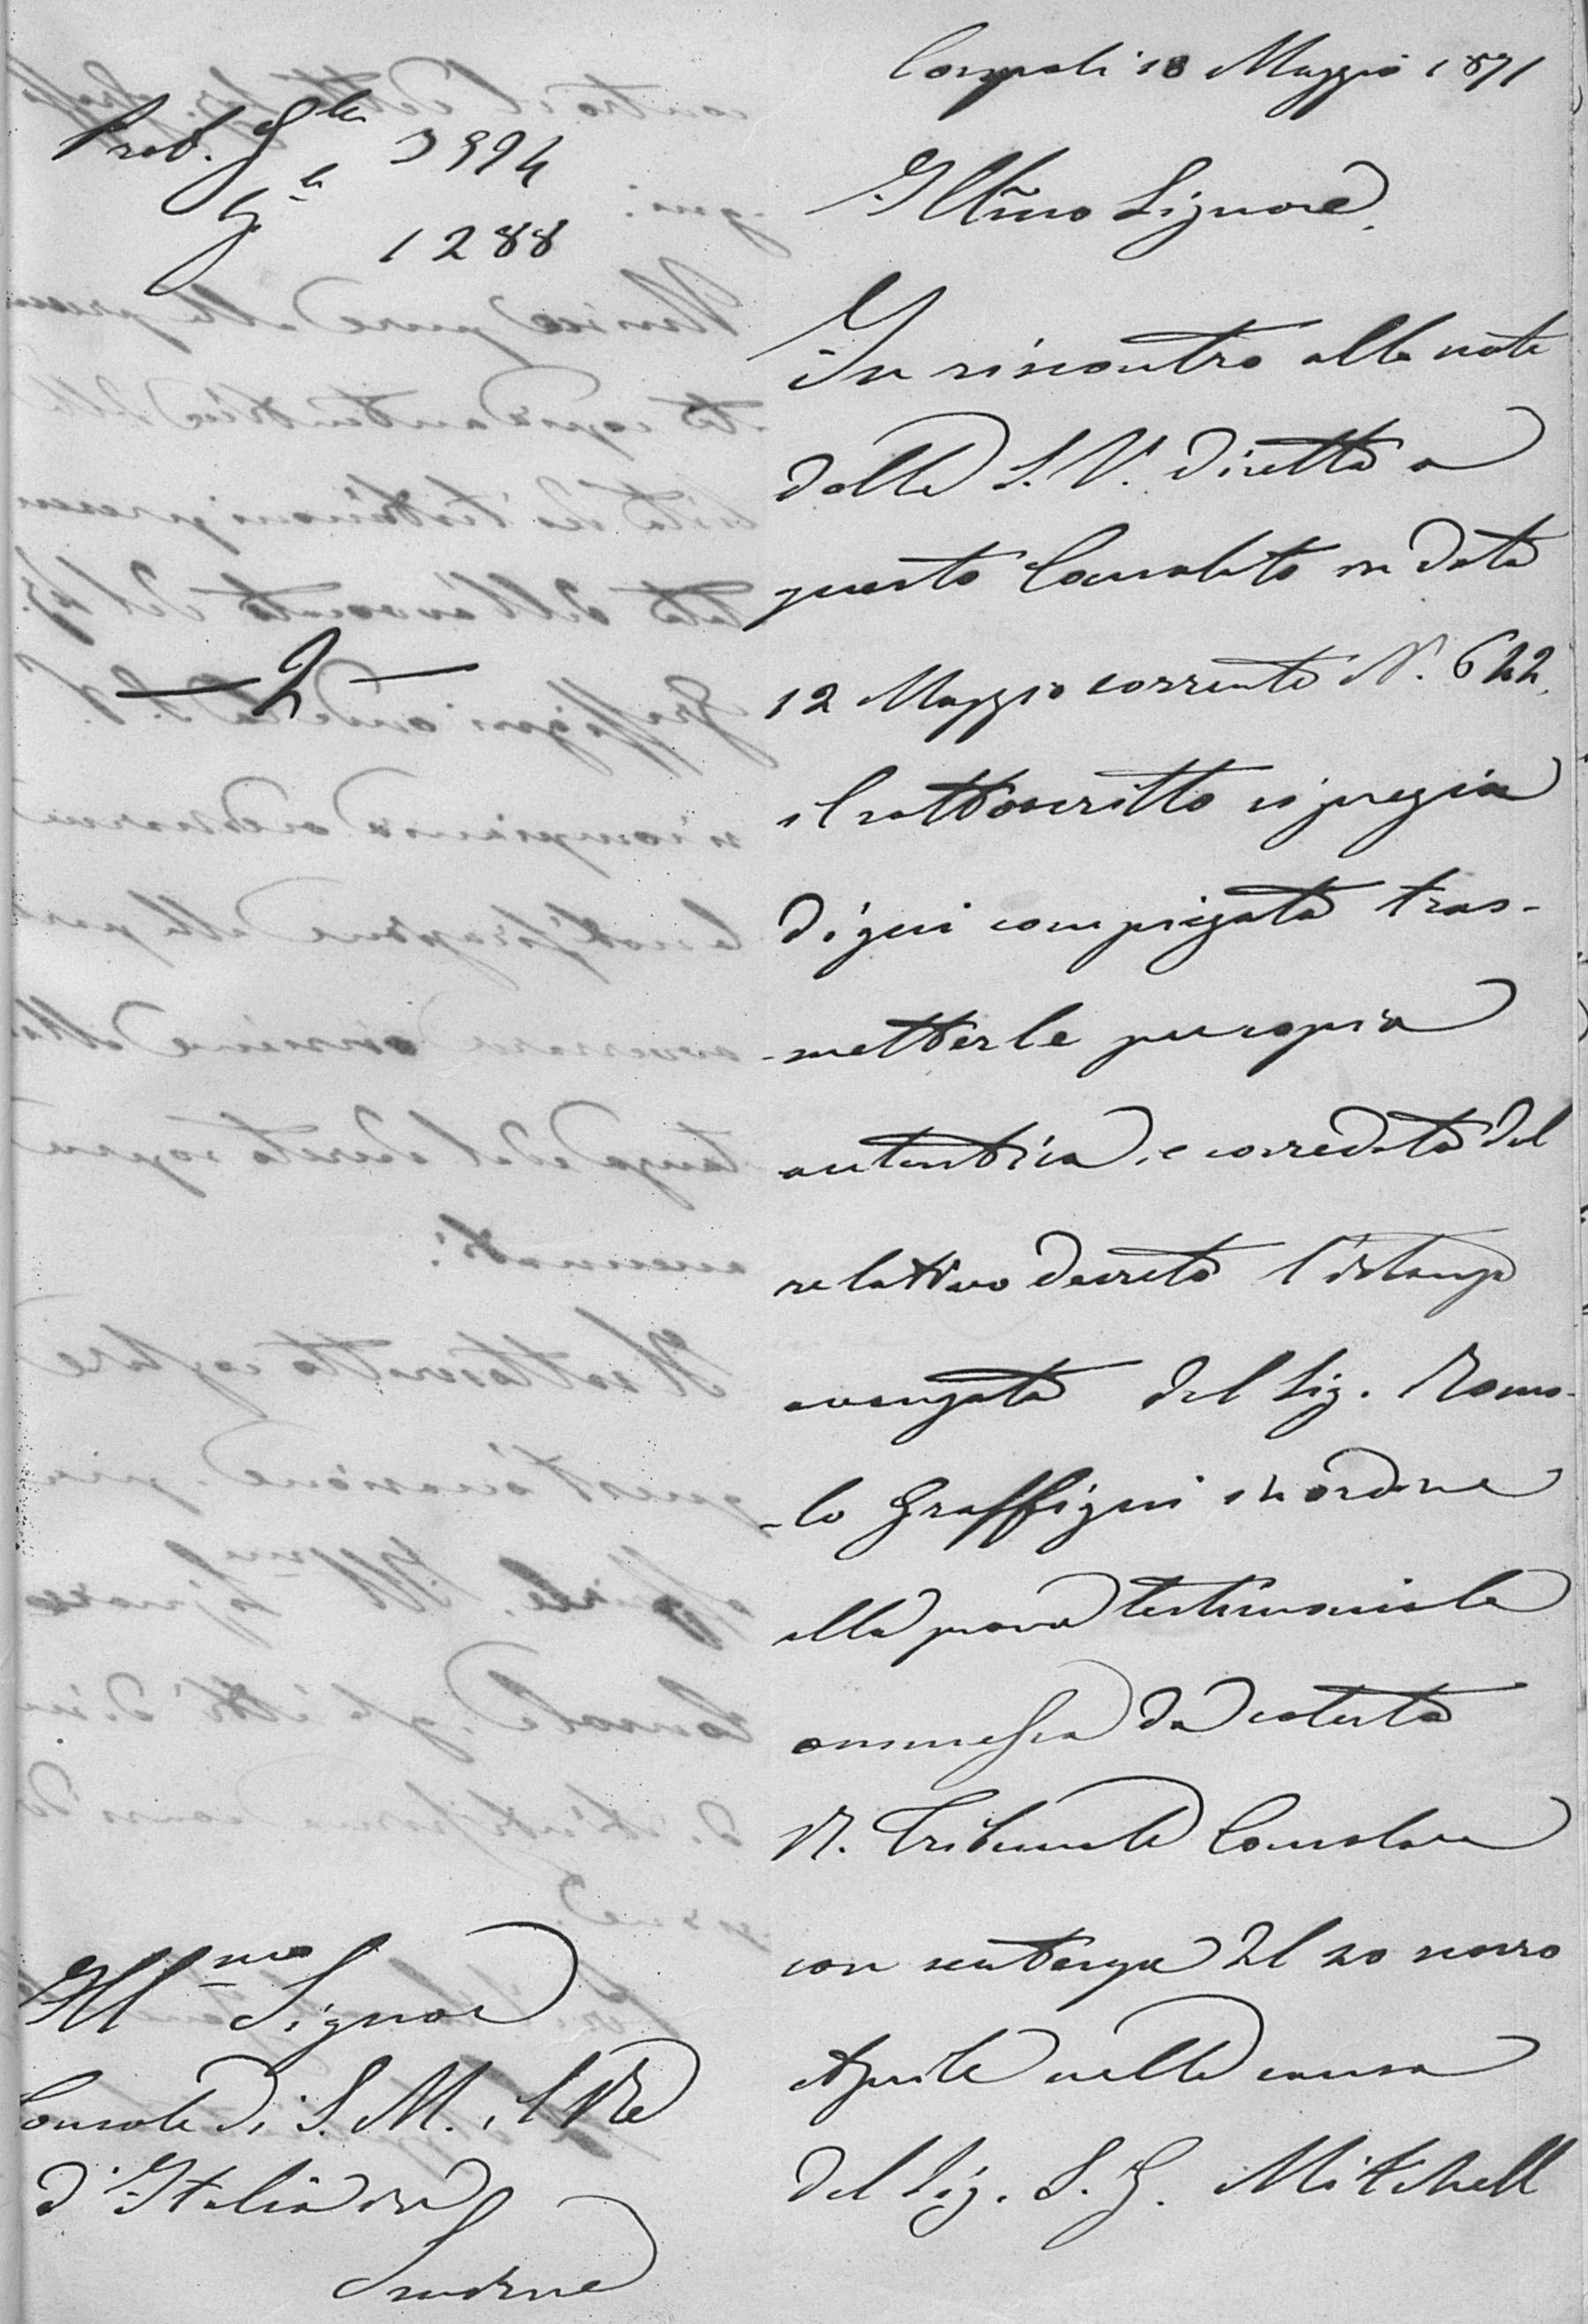 Cospoli 18 Maggio 1871
Prot. Gle 3994
Gle 1288
Illm̃o Signore,
In riscontro alla nota
dalla S. V. diretta a
questo Consolato in data
12 Maggio corrente N. 622,
il sottoscritto si pregia
di qui compiegata tras-
-metterle per copia
autentica, e corredata del
relativo decreto l'istanza
avanzata dal Sig. Romo-
-lo Graffigni in ordine
alla prova testimoniale
ammessa da codesto
R. Tribunale Consolare
con sentenza del 20 scorso
Aprile nella causa
del Sig. S. G. Mitchell
— 2 —
Illmo Signor
Console di S. M. il Re
d'Italia in
Smirne